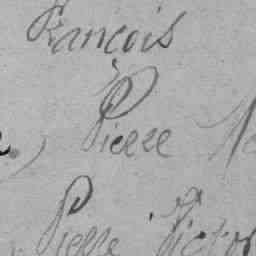 François
Pierre
Pierre Victor